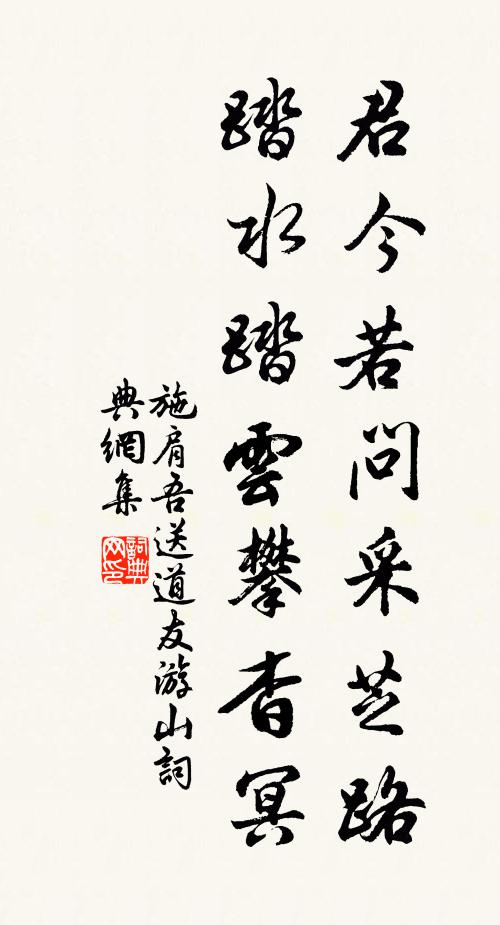 君今若问采芝路
踏水踏雲攀杳冥
施肩吾送道友游山詞
典網集
詞典网印